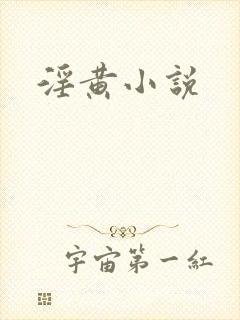 淫黄小說
宇宙第一紅